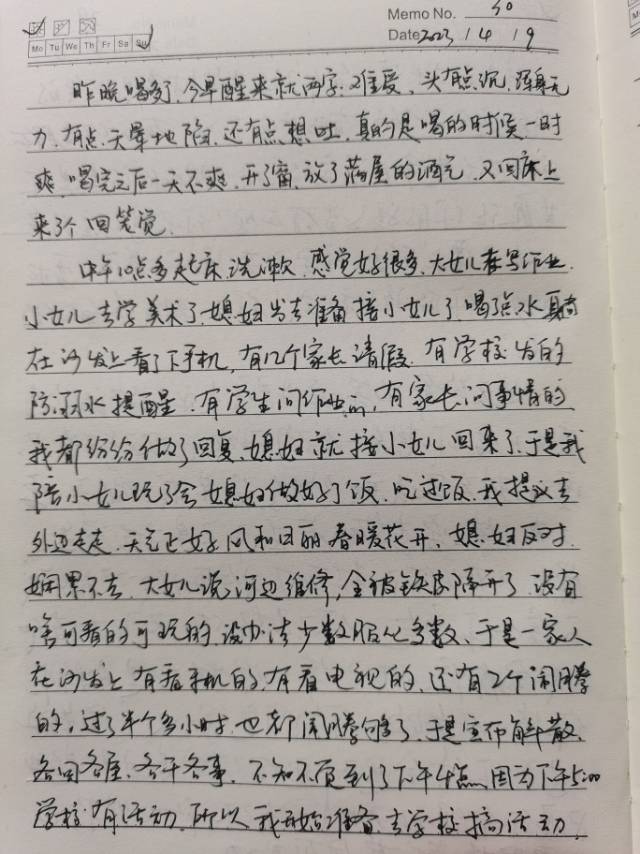 Memo No. 30
Mo Tu We Th Fr Sa Su
Date 2023 / 4 / 9
昨晚喝多了,今早醒来就两字:难受、头有点沉,浑身无
力、有点天晕地陷、还有点想吐,真的是喝的时候一时
爽,喝完之后一天不爽,开了窗,放了满屋的酒气,又回床上
来了个回笼觉.
中午10点多起床,洗漱、感觉好很多,大女儿在写作业.
小女儿去学美术了,媳妇出去准备接小女儿了,喝了点水躺
在沙发上看了下手机,有几个家长请假,有学校发的
防溺水提醒、有学生问作业的,有家长问事情的
我都纷纷做了回复,媳妇就接小女儿回来了,于是我
陪小女儿玩了会,媳妇做好了饭、吃过饭,我提议去
外边走走,天气正好,风和日丽,春暖花开,媳妇反对.
嫌累不去,大女儿说,河边维修,全被铁皮隔开了,没有
啥可看的可玩的,没办法少数服从多数、于是一家人
在沙发上有看手机的,有看电视的,还有2个闹腾
的,过了半个多小时,也都闹腾够了,于是宣布解散、
各回各屋,各干各事,不知不觉到了下午4点,因为下午5:00
学校有活动,所以我开始准备去学校搞活动.